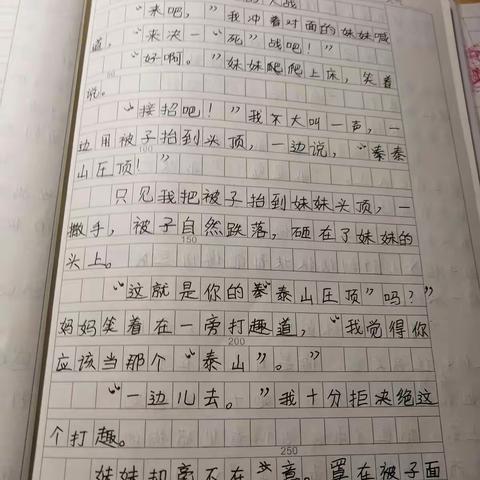 大战
“来吧，”我冲着对面的妹妹喊
道，“来决一“死”战吧！”
“好啊。”妹妹爬爬上床，笑着
说。
“接招吧！”我不大叫一声，一
边用被子抬到头顶，一边说，“秦泰
100
山压顶！”
只见我把被子抬到妹妹头顶，一
撒手，被子自然跌落，砸在了妹妹的
150
头上。
“这就是你的“泰山压顶”吗？”
妈妈笑着在一旁打趣道，“我觉得你
200
应该当那个“泰山”。”
“一边儿去。”我十分拒决绝这
个打趣。
250
妹妹 旁不在 意。罩在被子面